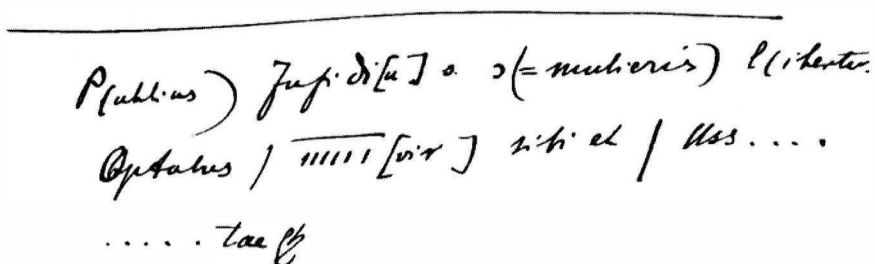 P(ublius) Fufidi[u]s ɔ(=mulieris) l(ibertus)
Optatus / IIIIII[vir] sibi et / Uss....
.....tae